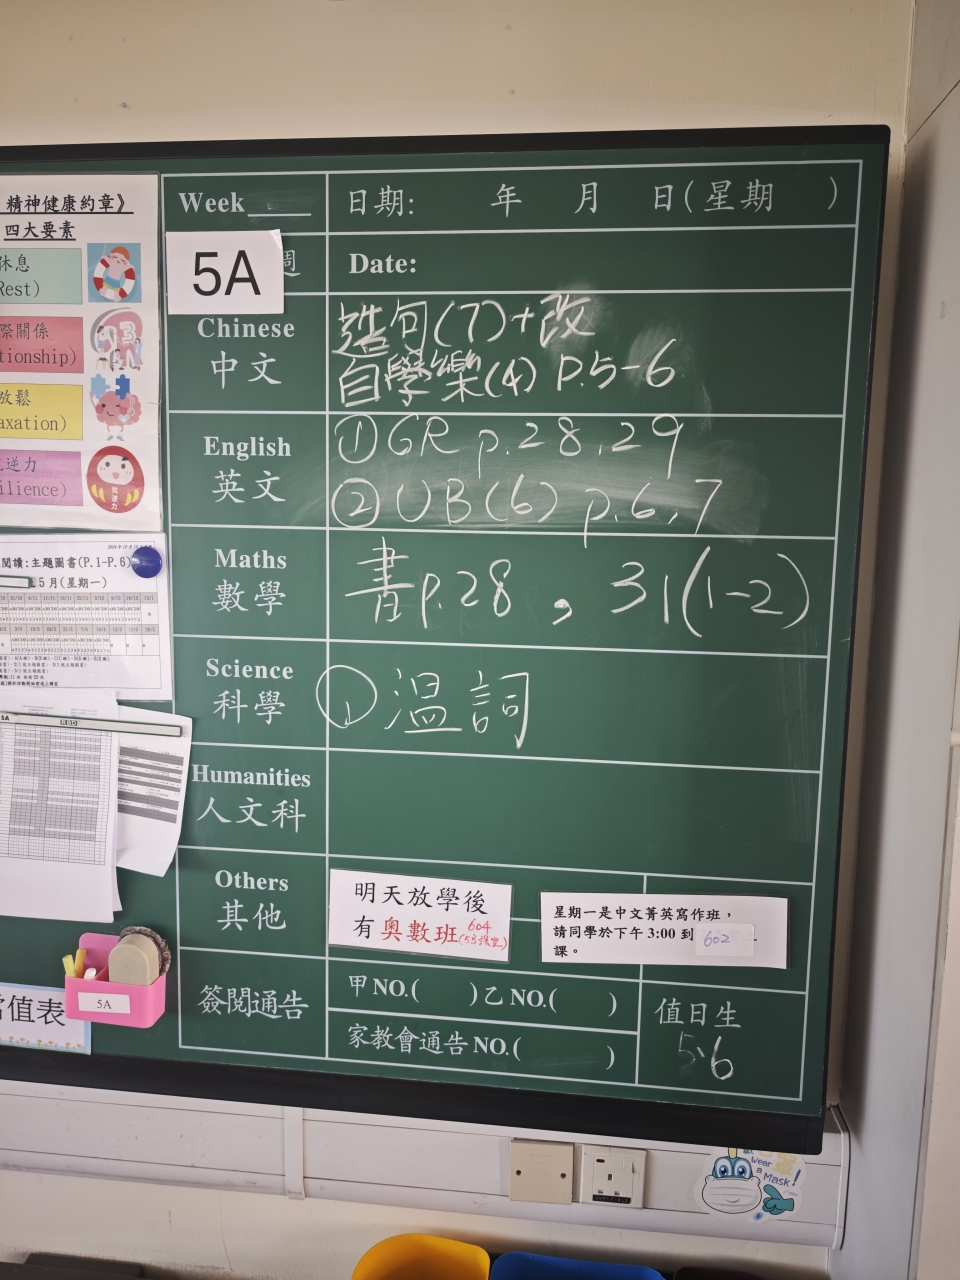 精神健康約章》
四大要素
休息
Rest)
際關係
tionship)
放鬆
axation)
逆力
ilience)
閱讀:主題圖書(P.1-P.6)
5月(星期一)
5A
RBD
5A
當值表
Week
日期: 年 月 日(星期 )
5A
週
Date:
Chinese
中文
造句(7)+改
自學樂(4) P.5-6
English
英文
① GR p.28,29
② UB(6) p.6,7
Maths
數學
書p.28, 31(1-2)
Science
科學
① 溫詞
Humanities
人文科
Others
其他
明天放學後
有奧數班 604
(5B課室)
星期一是中文菁英寫作班,
請同學於下午 3:00 到 602
課。
簽閱通告
甲 NO.( ) 乙 NO.( )
家教會通告 NO.( )
值日生
5、6
Wear
a Mask!